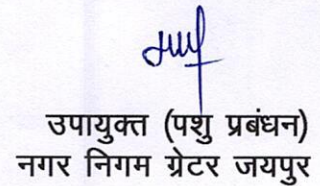 उपायुक्त (पशु प्रबंधन)
नगर निगम ग्रेटर जयपुर